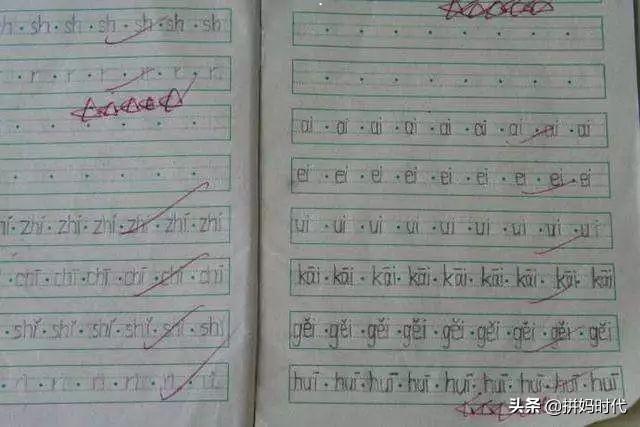 sh · sh · sh · sh · sh · sh
r · r · r · r · r · r
zhí · zhí · zhí · zhí · zhí · zhí
chī · chī · chī · chī · chī
shǐ · shí · shǐ · shí · shí
ai · ai · ai · ai · ai · ai · ai · ai · ai
ei · ei · ei · ei · ei · ei · ei · ei · ei
ui · ui · ui · ui · ui · ui · ui · ui · ui
kāi · kāi · kāi · kāi · kāi · kāi · kāi · kāi · kāi
gěi · gěi · gěi · gěi · gěi · gěi · gěi · gěi · gěi
huī · huī · huī · huī · huī · huī · huī · huī · huī
头条 @拼妈时代